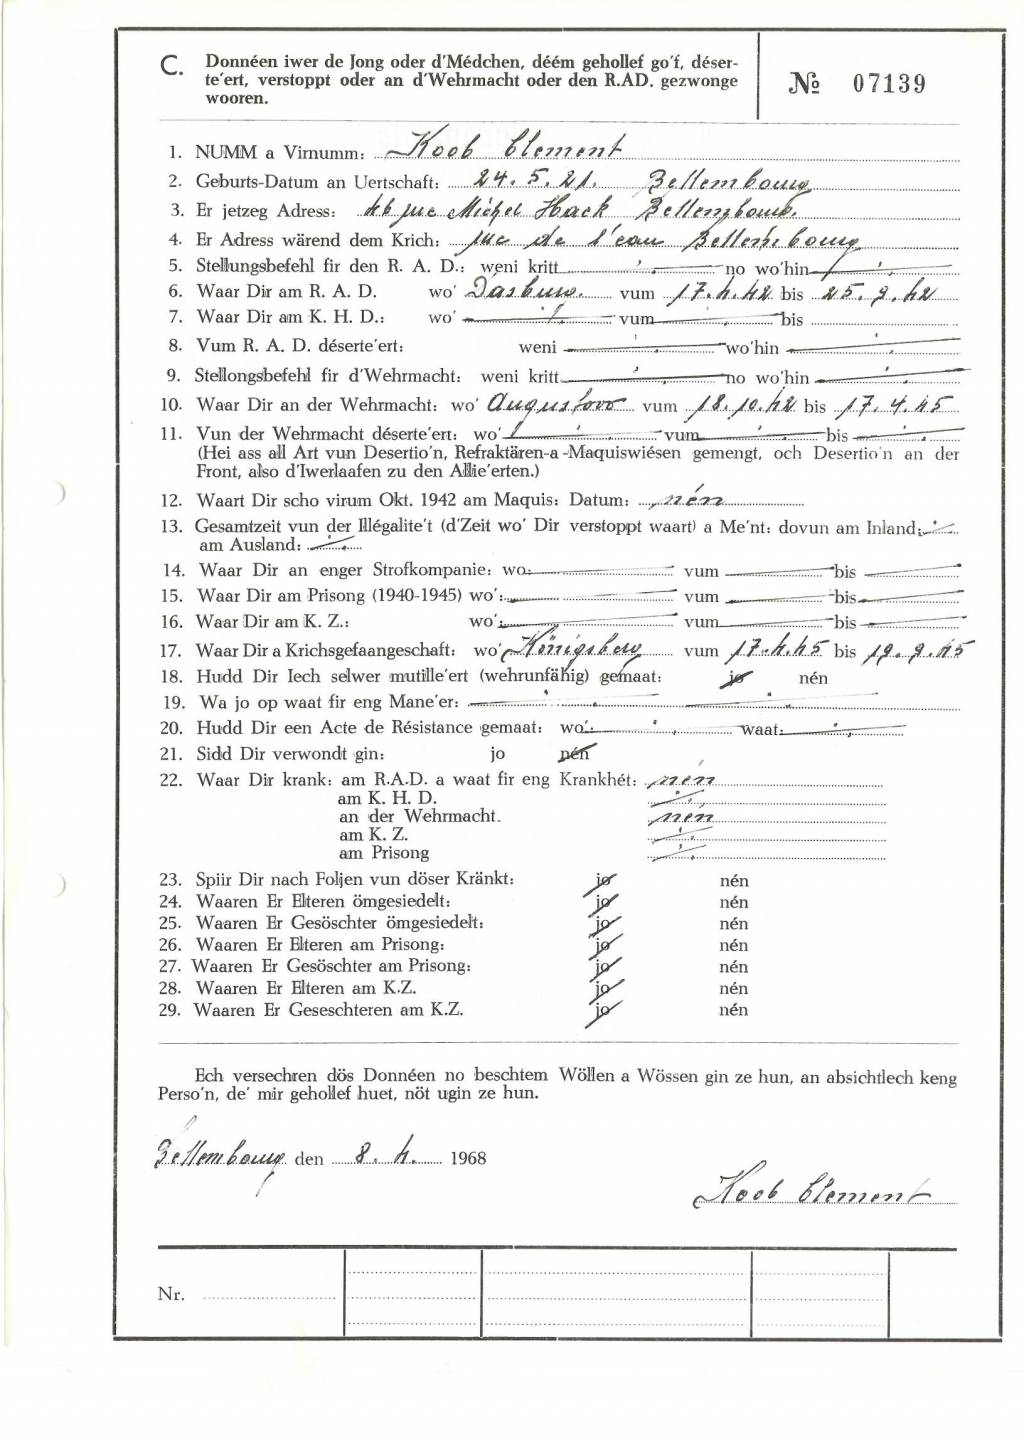 C. Donnéen iwer de Jong oder d'Médchen, déém gehollef go'f, déser-
te'ert, verstoppt oder an d'Wehrmacht oder den R.AD. gezwonge
wooren.
№ 07139
1. NUMM a Virnumm: Koob Clement
2. Geburts-Datum an Uertschaft: 24. 5. 21. Bettembourg
3. Er jetzeg Adress: rue Michel Hack Bettembourg.
4. Er Adress wärend dem Krich: rue de l'eau Bettembourg
5. Stellungsbefehl fir den R. A. D.: weni kritt no wo'hin
6. Waar Dir am R. A. D. wo' Dasburg. vum 17.4.42 bis 25.9.42
7. Waar Dir am K. H. D.: wo' vum bis
8. Vum R. A. D. déserte'ert: weni wo'hin
9. Stellongsbefehl fir d'Wehrmacht: weni kritt no wo'hin
10. Waar Dir an der Wehrmacht: wo' Augustovo vum 18.10.42 bis 17.4.45
11. Vun der Wehrmacht déserte'ert: wo' vum bis
(Hei ass all Art vun Desertio'n, Refraktären-a-Maquiswiésen gemengt, och Desertio'n an der
Front, also d'Iwerlaafen zu den Allie'erten.)
12. Waart Dir scho virum Okt. 1942 am Maquis: Datum: nén
13. Gesamtzeit vun der Illégalite't (d'Zeit wo' Dir verstoppt waart) a Me'nt: dovun am Inland:
am Ausland:
14. Waar Dir an enger Strofkompanie: wo: vum bis
15. Waar Dir am Prisong (1940-1945) wo': vum bis
16. Waar Dir am K. Z.: wo': vum bis
17. Waar Dir a Krichsgefaangeschaft: wo' Königsberg vum 17.4.45 bis 19.9.45
18. Hudd Dir Iech selwer mutille'ert (wehrunfähig) gemaat: jo nén
19. Wa jo op waat fir eng Mane'er:
20. Hudd Dir een Acte de Résistance gemaat: wo': waat:
21. Sidd Dir verwondt gin: jo nén
22. Waar Dir krank: am R.A.D. a waat fir eng Krankhét: nén
am K. H. D.
an der Wehrmacht. nén
am K. Z.
am Prisong
23. Spiir Dir nach Foljen vun döser Kränkt: jo nén
24. Waaren Er Elteren ömgesiedelt: jo nén
25. Waaren Er Gesöschter ömgesiedelt: jo nén
26. Waaren Er Elteren am Prisong: jo nén
27. Waaren Er Gesöschter am Prisong: jo nén
28. Waaren Er Elteren am K.Z. jo nén
29. Waaren Er Geseschteren am K.Z. jo nén
Ech versechren dös Donnéen no beschtem Wöllen a Wössen gin ze hun, an absichtlech keng
Perso'n, de' mir gehollef huet, nöt ugin ze hun.
Bettembourg den 8. 4. 1968
Koob Clement
Nr.